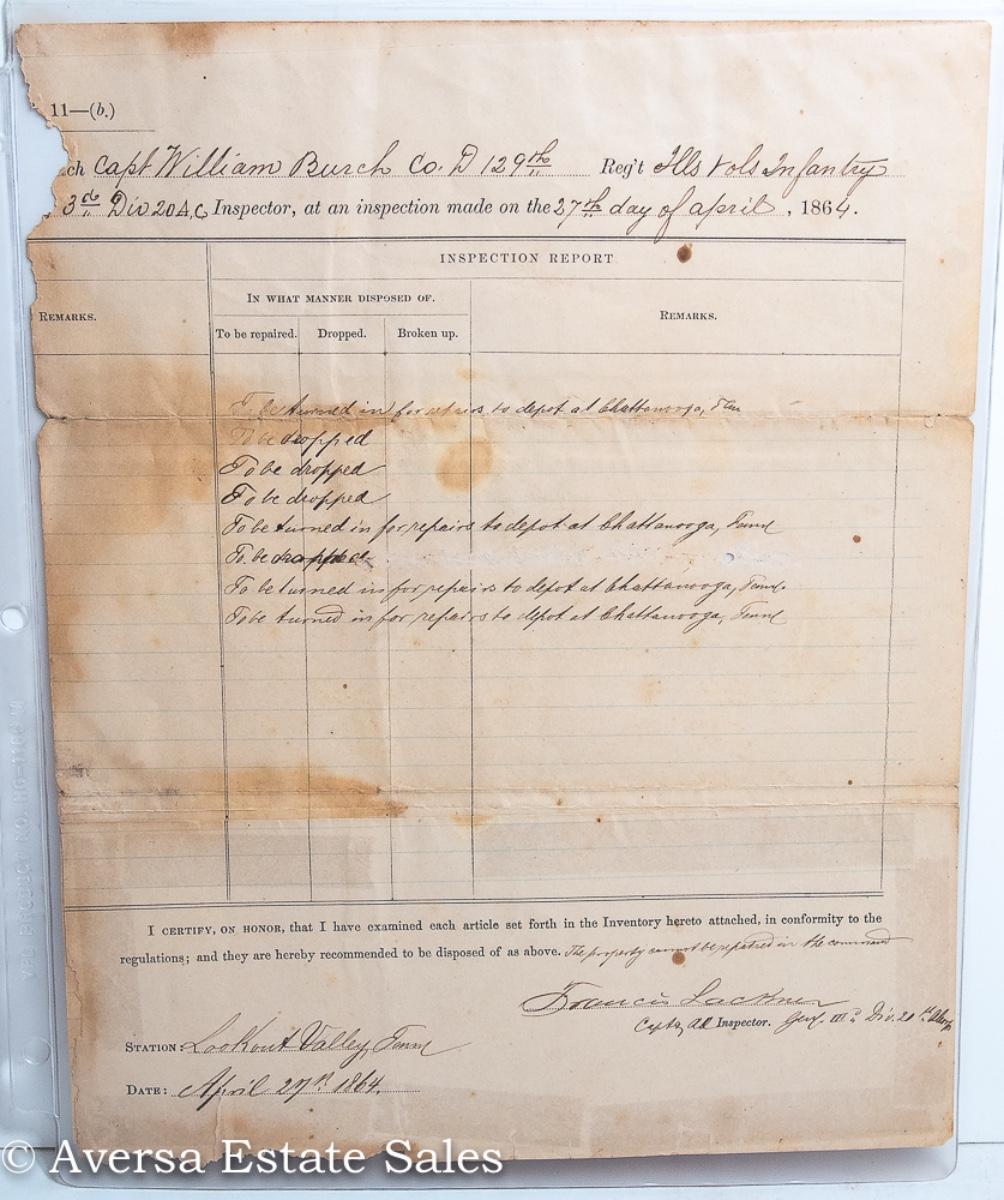 11—(b.)
ch Capt William Burch Co. D 129th Reg't Ills Vols Infantry
3d Div 20 A,C Inspector, at an inspection made on the 27th day of april, 1864.
INSPECTION REPORT
REMARKS.
IN WHAT MANNER DISPOSED OF.
REMARKS.
To be repaired. Dropped. Broken up.
To be turned in for repairs to depot at Chattanooga, Ten
To be dropped
To be dropped
To be dropped
To be turned in for repairs to depot at Chattanooga, Tenn
To be dropped
To be turned in for repairs to depot at Chattanooga, Tenn.
To be turned in for repairs to depot at Chattanooga, Tenn
I CERTIFY, ON HONOR, that I have examined each article set forth in the Inventory hereto attached, in conformity to the
regulations; and they are hereby recommended to be disposed of as above. The property cannot be repaired in the command
Francis Lackner
Inspector. IIId. Div. 20th
STATION: Lookout Valley, Tenn
DATE: April 27th 1864.
© Aversa Estate Sales